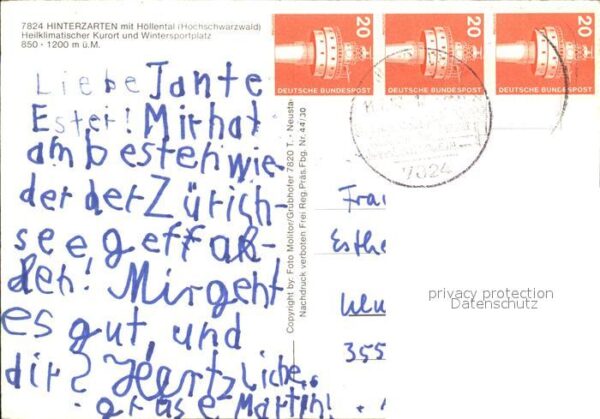 7824 HINTERZARTEN mit Höllental (Hochschwarzwald)
Heilklimatischer Kurort und Wintersportplatz
850 - 1200 m ü.M.
Liebe Tante
Ester! Mir hat
am besten wie-
der der Zürich-
see geffal-
len! Mir geht
es gut, und
dir? Hertzliche
grüse Martin!
Copyright by: Foto Molitor/Grubhofer 7820 T. - Neusta
Nachdruck verboten Frei Reg.Präs.Fbg. Nr.44/30
20
DEUTSCHE BUNDESPOST
20
DEUTSCHE BUNDESPOST
20
DEUTSCHE BUNDESPOST
7824
Frau
Esthe
355
privacy protection
Datenschutz